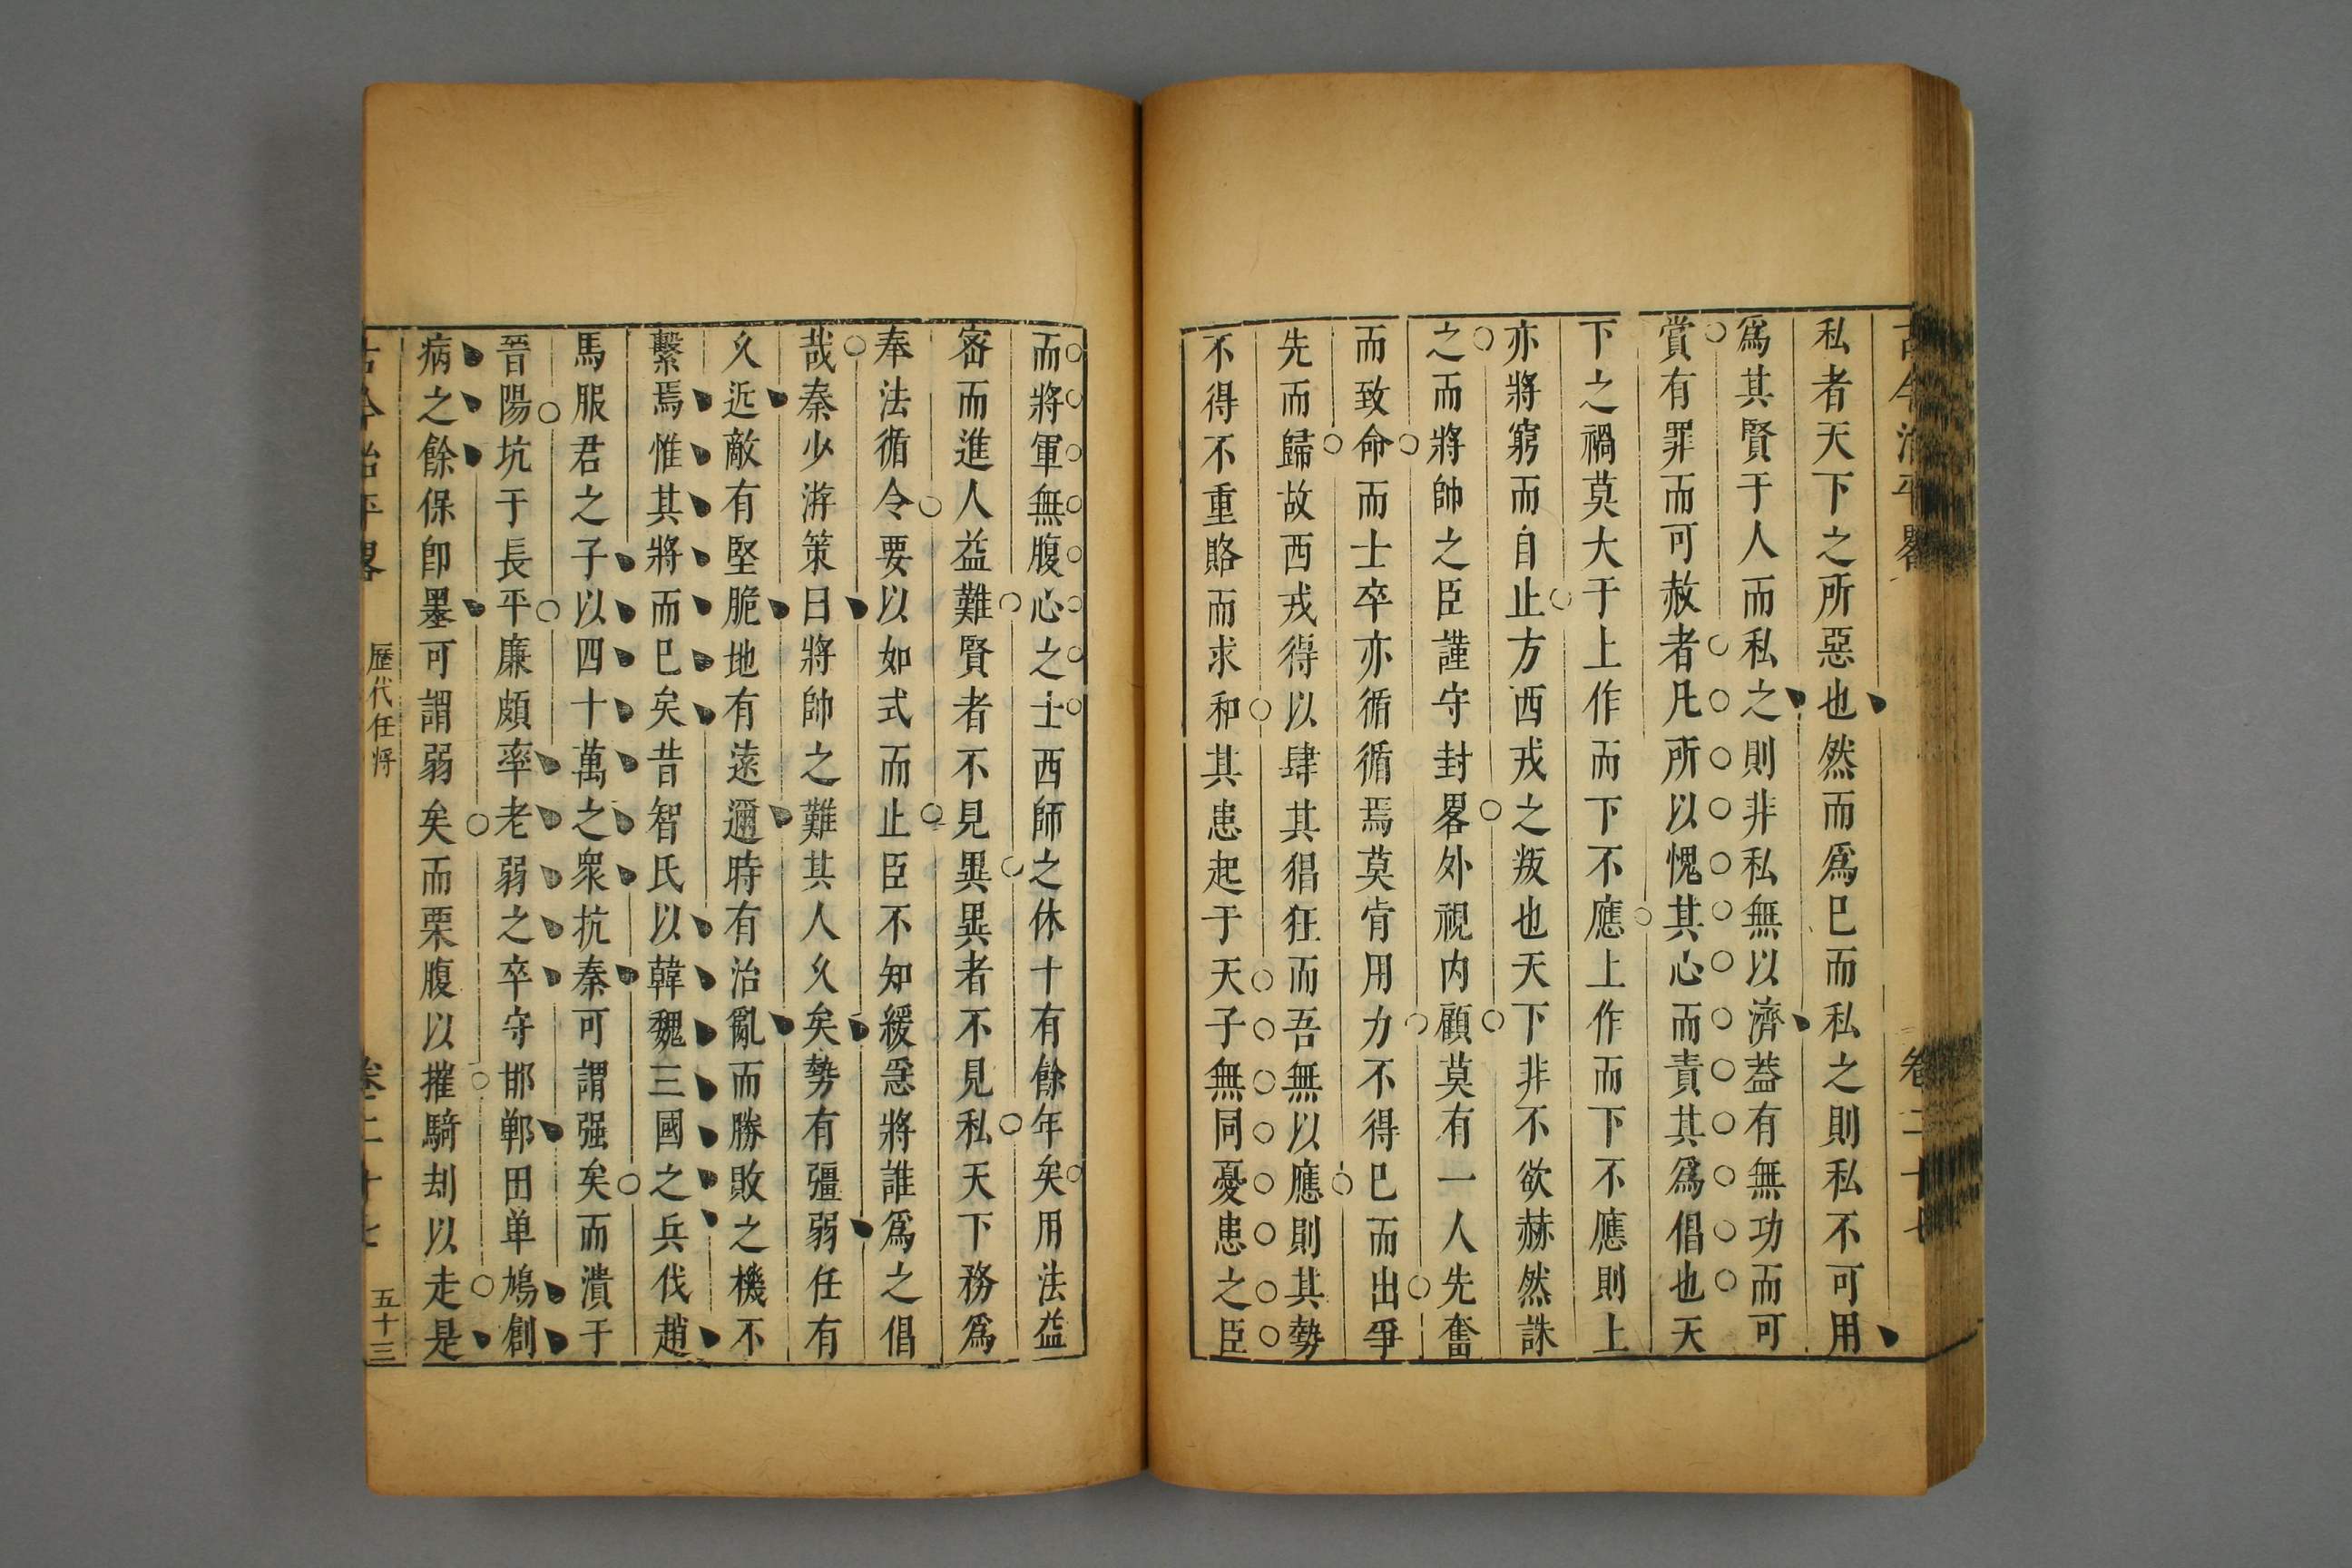 古今治平畧 卷二十七
私者天下之所惡也然而爲巳而私之則私不可用
爲其賢于人而私之則非私無以濟葢有無功而可
賞有罪而可赦者凡所以愧其心而責其爲倡也天
下之禍莫大于上作而下不應上作而下不應則上
亦將窮而自止方西戎之叛也天下非不欲赫然誅
之而將帥之臣謹守封畧外視内顧莫有一人先奮
而致命而士卒亦循循焉莫肯用力不得巳而出爭
先而歸故西戎得以肆其猖狂而吾無以應則其勢
不得不重賂而求和其患起于天子無同憂患之臣
而將軍無腹心之士西師之休十有餘年矣用法益
宻而進人益難賢者不見異異者不見私天下務爲
奉法循令要以如式而止臣不知緩急將誰爲之倡
哉秦少游策曰將帥之難其人乆矣勢有彊弱任有
乆近敵有堅脆地有遠邇時有治亂而勝敗之機不
繫焉惟其將而巳矣昔智氏以韓魏三國之兵伐趙
馬服君之子以四十萬之衆抗秦可謂强矣而潰于
晉陽坑于長平廉頗率老弱之卒守邯鄲田单鳩創
病之餘保卽墨可謂弱矣而栗腹以摧騎刦以走是
古今治平畧 歷代任將 卷二十七 五十三